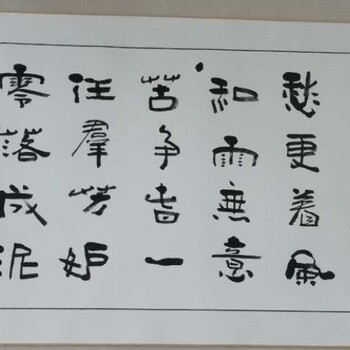 愁更着風
和雨無意
苦争旾一
任羣芳妒
零落成泥